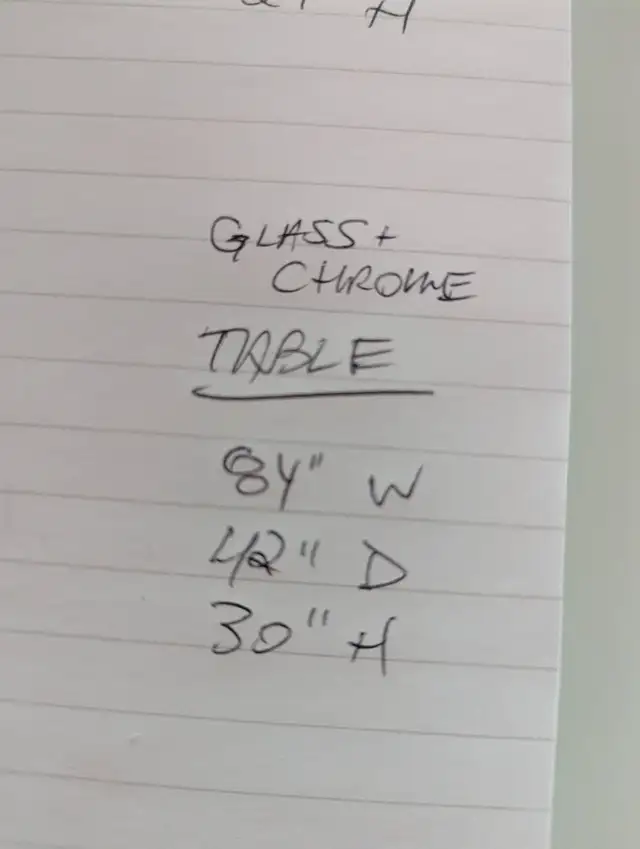 H
GLASS +
CHROME
TABLE
84" W
42" D
30" H